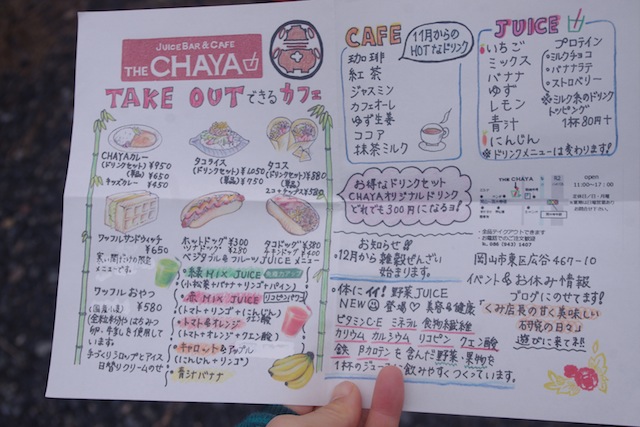 JUICE BAR & CAFE
THE CHAYA
TAKE OUTできるカフェ
CHAYAカレー
(ドリンクセット)¥950
(単品) ¥650
キッズカレー ¥450
タコライス
(ドリンクセット)¥1050
(単品) ¥950
タコス
(ドリンクセット)¥880
(単品) ¥580
2コ
ワッフルサンドウィッチ
¥650
寒い間だけの限定
メニューです。
ホットドッグ ¥300
¥280
タコドッグ ¥380
チキンドッグ ¥400
ベジタブル&フルーツJUICEメニュー
緑 MIX JUICE
(小松菜+バナナ+リンゴ+パイン)
赤 MIX JUICE
リコピンパワー
(トマト+リンゴ+にんじん
+オレンジ+クエン酸)
トマト&オレンジ
(トマト+オレンジ+クエン酸)
キャロット&アップル
(にんじん+リンゴ)
青汁バナナ
ワッフルおやつ
¥580
(国産小麦)
全粒粉やはちみつ
卵、牛乳を使用して
います。
手づくりシロップとアイス
日替りクリームのせ
CAFE
11月からの
HOTなドリンク
珈琲
紅茶
ジャスミン
カフェオーレ
ゆず生姜
ココア
抹茶ミルク
JUICE
いちご
ミックス
バナナ
ゆず
レモン
青汁
にんじん
プロテイン
・ミルクチョコ
・バナナラテ
・ストロベリー
※ミルク系のドリンク
トッピング
1杯80円+
※ドリンクメニューは変わります!
お得なドリンクセット
CHAYAオリジナルドリンク
どれでも300円になるヨ!
お知らせ!!
・12月から雑穀ぜんざい
始まります。
・体にイイ!野菜JUICE
NEW 登場♡ 美容&健康
ビタミンC・E ミネラル 食物繊維
カリウム カルシウム リコピン クエン酸
鉄 βカロテンを含んだ野菜・果物を
1杯のジュースに飲みやすくつくっています。
THE CHAYA
open
11:00〜17:00
全品テイクアウトできます
お電話でのご注文歓迎
岡山市東区広谷467-10
イベント&お休み情報
ブログにのせてます!
「くみ店長の甘く美味しい
研究の日々」
遊びに来てネ!!